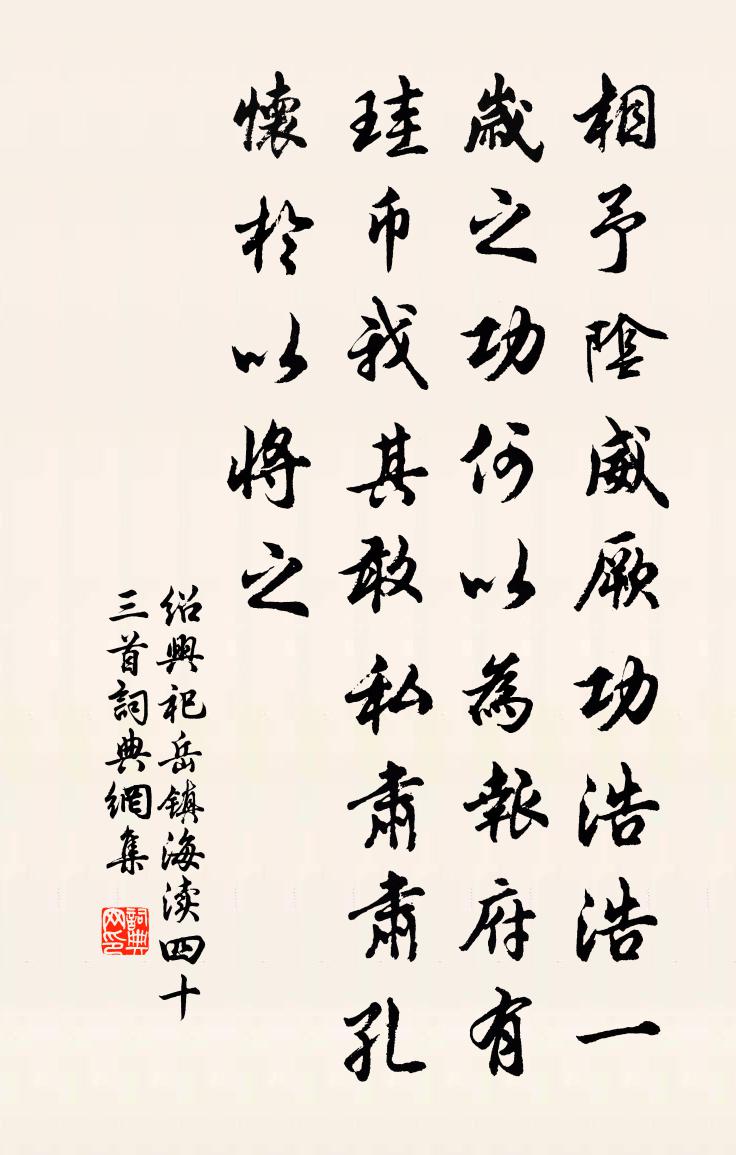 相予陰威厥功浩浩一
歲之功何以為報府有
珪币我其敢私肅肅孔
懷於以將之
绍興祀岳镇海渎四十
三首詞典網集
詞典网印